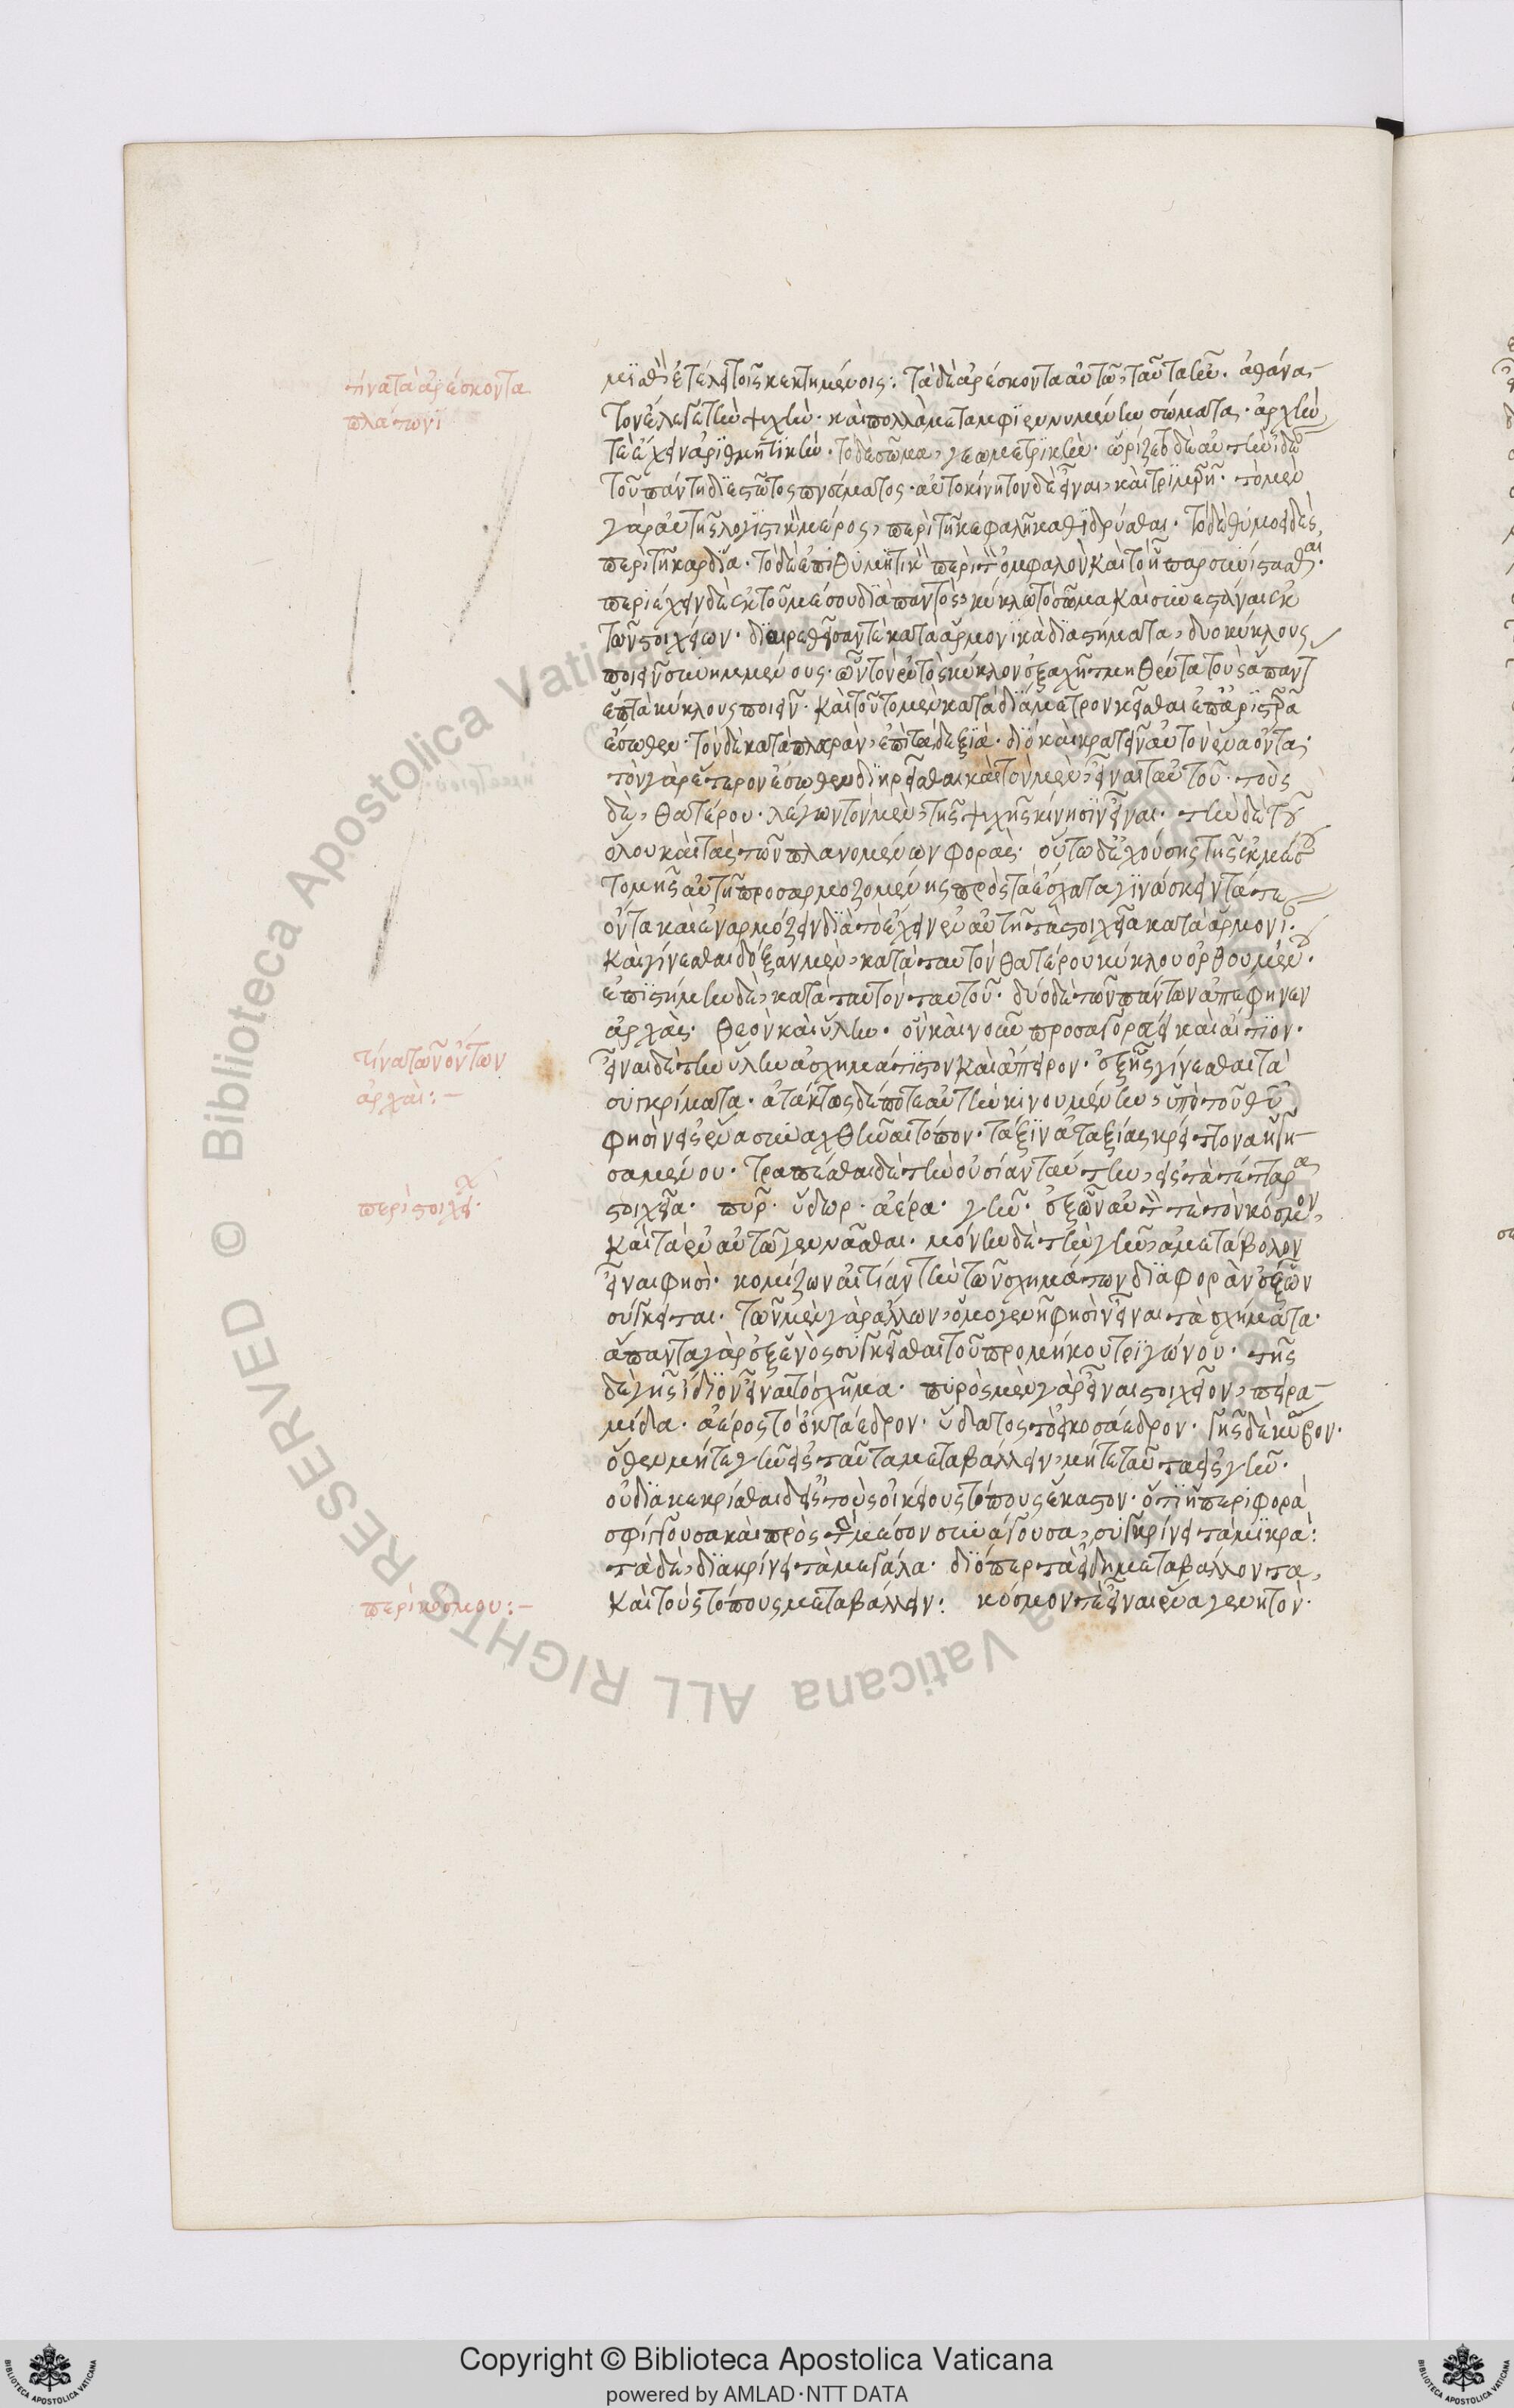 τίνα τὰ ἀρέσκοντα
πλάτωνι
μισθὸν ἐτέλει τοῖς κεκτημένοις: τὰ δὲ ἀρέσκοντα αὐτῷ, ταῦτα ἦν. ἀθάνα-
τον ἔλεγε τὴν ψυχὴν. καὶ πολλὰ μεταμφιεννυμένην σώματα. ἀρχὴν
τὲ ἔχειν ἀριθμητικὴν. τὸ δὲ σῶμα, γεωμετρικὴν. ὡρίζετο δὲ αὐτὴν ἰδέαν
τοῦ πάντη διεστῶτος πνεύματος. αὐτοκίνητον δὲ εἶναι, καὶ τριμερῆ. τὸ μὲν
γὰρ αὐτῆς λογιστικὸν μέρος, περὶ τὴν κεφαλὴν καθιδρύσθαι. τὸ δὲ θυμοειδὲς,
περὶ τὴν καρδίαν. τὸ δὲ ἐπιθυμητικὸν περὶ τὸν ὀμφαλὸν καὶ τὸ ἧπαρ συνίστασθαι.
περιέχειν δὲ ἐκ τοῦ μέσου διὰ παντὸς, κύκλῳ τὸ σῶμα καὶ συνεστάναι ἐκ
τῶν στοιχείων. διαιρεθεῖσαν τὲ κατὰ ἁρμονικὰ διαστήματα, δύο κύκλους
ποιεῖν συνημμένους. ὧν τὸν ἐντὸς κύκλον ἑξαχῆ τμηθέντα τοὺς ἅπαντ
ἑπτὰ κύκλους ποιεῖν. καὶ τοῦτο μὲν κατὰ διάμετρον κεῖσθαι ἐπ' ἀριστερᾶ
ἔσωθεν. τὸν δὲ κατὰ πλευρὰν, ἐπὶ τὰ δεξιὰ. διὸ καὶ κρατεῖν αὐτὸν ἕνα ὄντα.
τὸν γὰρ ἕτερον ἔσωθεν διηρῆσθαι καὶ τὸν μὲν, εἶναι ταὐτοῦ. τοὺς
δὲ, θατέρου. λέγων τὸν μὲν, τῆς ψυχῆς κίνησιν εἶναι. τὴν δὲ τοῦ
ὅλου καὶ τὰς τῶν πλανομένων φορὰς. οὕτω δ' ἐχούσης τῆς ἐκ μέσου
τομῆς αὐτῇ προσαρμοζομένης πρὸς τὰ ἔσχατα γινώσκειν τά τε
ὄντα καὶ ἐναρμόζειν διὰ τὸ ἔχειν ἐν αὐτῇ τὰ στοιχεῖα κατὰ ἁρμονί.
καὶ γίνεσθαι δόξαν μὲν, κατὰ ταυτὸν θατέρου κύκλου ὀρθουμένου.
ἐπιστήμην δὲ, κατὰ ταυτὸν ταυτοῦ. δύο δὲ τῶν πάντων ἀπέφηνεν
ἀρχὰς. θεὸν καὶ ὕλην. ὃν καὶ νοῦν προσαγορεύει καὶ αἴτιον.
τίνα τῶν ὄντων
ἀρχαί:-
εἶναι δὲ τὴν ὕλην ἀσχημάτιστον καὶ ἄπειρον. ἐξ ἧς γίνεσθαι τὰ
συγκρίματα. ἀτάκτως δέ ποτε αὐτὴν κινουμένην, ὑπὸ τοῦ θεοῦ
φησὶν εἰς ἕνα συναχθῆναι τόπον. τάξιν ἀταξίας κρείττονα ἡγη-
σαμένου. τραπέσθαι δὲ τὴν οὐσίαν ταύτην, εἰς τὰ τέτταρα
περὶ στοιχεί.
στοιχεῖα. πῦρ. ὕδωρ. ἀέρα. γῆν. ἐξ ὧν αὐτόν τε τὸν κόσμον,
καὶ τὰ ἐν αὐτῷ γεννᾶσθαι. μόνην δὲ τὴν γῆν, ἀμετάβολον
εἶναι φησὶ. νομίζων αἰτίαν τὴν τῶν σχημάτων διαφορὰν ἐξ ὧν
σύγκειται. τῶν μὲν γὰρ ἄλλων, ὁμογενῆ φησὶν εἶναι τὰ σχήματα.
ἅπαντα γὰρ ἐξ ἑνὸς συγκεῖσθαι τοῦ προμήκου τριγώνου. τῆς
δὲ γῆς ἴδιον εἶναι τὸ σχῆμα. πυρὸς μὲν γὰρ εἶναι στοιχεῖον, πυρα-
μίδα. ἀέρος τὸ ὀκτάεδρον. ὕδατος τὸ εἰκοσάεδρον. γῆς δὲ κύβον.
ὅθεν μήτε γῆν εἰς ταῦτα μεταβάλλειν, μήτε ταῦτα εἰς γῆν.
οὐ διακεκρίσθαι δ' εἰς τοὺς οἰκείους τόπους ἕκαστον. ὅτι ἡ περιφορὰ
σφίγγουσα καὶ πρὸς τὸ μέσον συνάγουσα, συγκρίνει τὰ μικρά:
τὰ δὲ, διακρίνει τὰ μεγάλα. διόπερ τὰ εἴδη μεταβάλλοντα,
περὶ κόσμου:-
καὶ τοὺς τόπους μεταβάλλειν: κόσμον τὲ εἶναι ἕνα γεννητὸν.